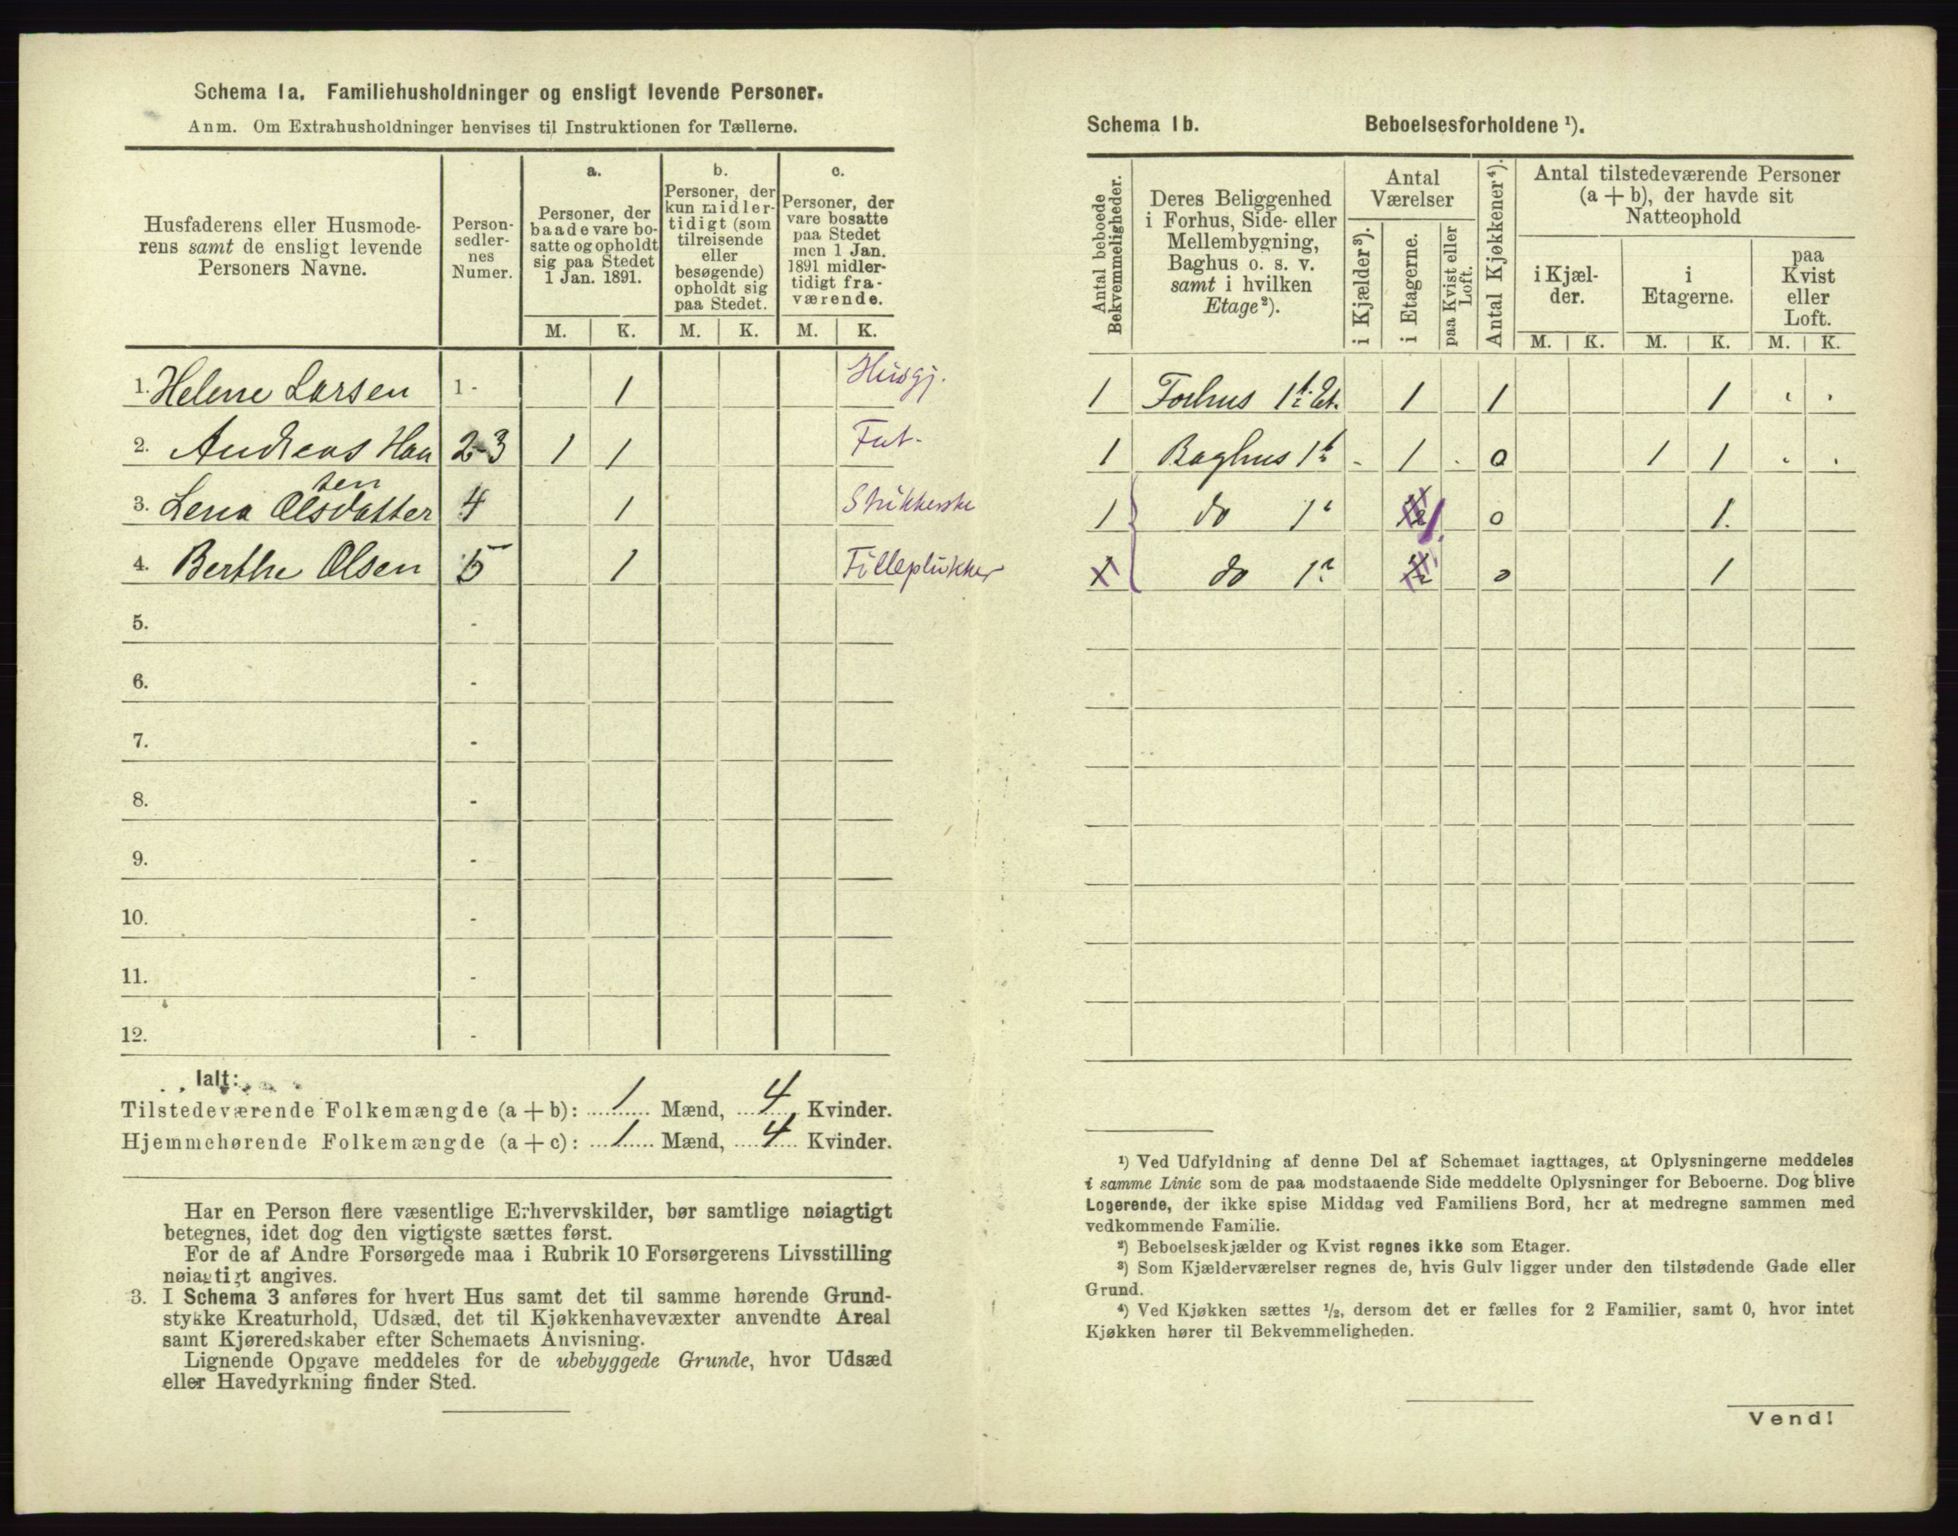 Schema 1a. Familiehusholdninger og ensligt levende Personer.
Anm. Om Extrahusholdninger henvises til Instruktionen for Tællerne.
Husfaderens eller Husmode-
rens samt de ensligt levende
Personers Navne.
Person-
sedler-
nes
Numer.
a.
Personer, der
baade vare bo-
satte og opholdt
sig paa Stedet
1 Jan. 1891.
b.
Personer, der
kun midler-
tidigt (som
tilreisende
eller
besøgende)
opholdt sig
paa Stedet.
c.
Personer, der
vare bosatte
paa Stedet
men 1 Jan.
1891 midler-
tidigt fra-
værende.
M. K. M. K. M. K.
1. Helene Larsen 1 - 1 Husgj.
2. Andreas Han 2-3 1 1 Fat.
sen
3. Lena Olsdatter 4 1 Strikkerske
4. Berthe Olsen 5 1 Filleplukker
5. -
6. -
7. -
8. -
9. -
10. -
11. -
12. -
Ialt:
Tilstedeværende Folkemængde (a + b): 1 Mænd, 4 Kvinder.
Hjemmehørende Folkemængde (a + c): 1 Mænd, 4 Kvinder.
Har en Person flere væsentlige Erhvervskilder, bør samtlige nøiagtigt
betegnes, idet dog den vigtigste sættes først.
For de af Andre Forsørgede maa i Rubrik 10 Forsørgerens Livsstilling
nøiagtigt angives.
3. I Schema 3 anføres for hvert Hus samt det til samme hørende Grund-
stykke Kreaturhold, Udsæd, det til Kjøkkenhavevæxter anvendte Areal
samt Kjøreredskaber efter Schemaets Anvisning.
Lignende Opgave meddeles for de ubebyggede Grunde, hvor Udsæd
eller Havedyrkning finder Sted.
Schema 1b. Beboelsesforholdene ¹).
Antal beboede
Bekvemmeligheder.
Deres Beliggenhed
i Forhus, Side- eller
Mellembygning,
Baghus o. s. v.
samt i hvilken
Etage²).
Antal
Værelser
i Kjælder³).
i Etagerne.
paa Kvist eller
Loft.
Antal Kjøkkener⁴).
Antal tilstedeværende Personer
(a + b), der havde sit
Natteophold
i Kjæl-
der.
i
Etagerne.
paa
Kvist
eller
Loft.
M. K. M. K. M. K.
1 Forhus 1ste Et. 1 1 1 . .
1 Baghus 1ste - 1 . 0 1 1 . .
1 do 1" 1 0 1.
1 do 1" 0 1
¹) Ved Udfyldning af denne Del af Schemaet iagttages, at Oplysningerne meddeles
i samme Linie som de paa modstaaende Side meddelte Oplysninger for Beboerne. Dog blive
Logerende, der ikke spise Middag ved Familiens Bord, her at medregne sammen med
vedkommende Familie.
²) Beboelseskjælder og Kvist regnes ikke som Etager.
³) Som Kjælderværelser regnes de, hvis Gulv ligger under den tilstødende Gade eller
Grund.
⁴) Ved Kjøkken sættes ½, dersom det er fælles for 2 Familier, samt 0, hvor intet
Kjøkken hører til Bekvemmeligheden.
Vend!